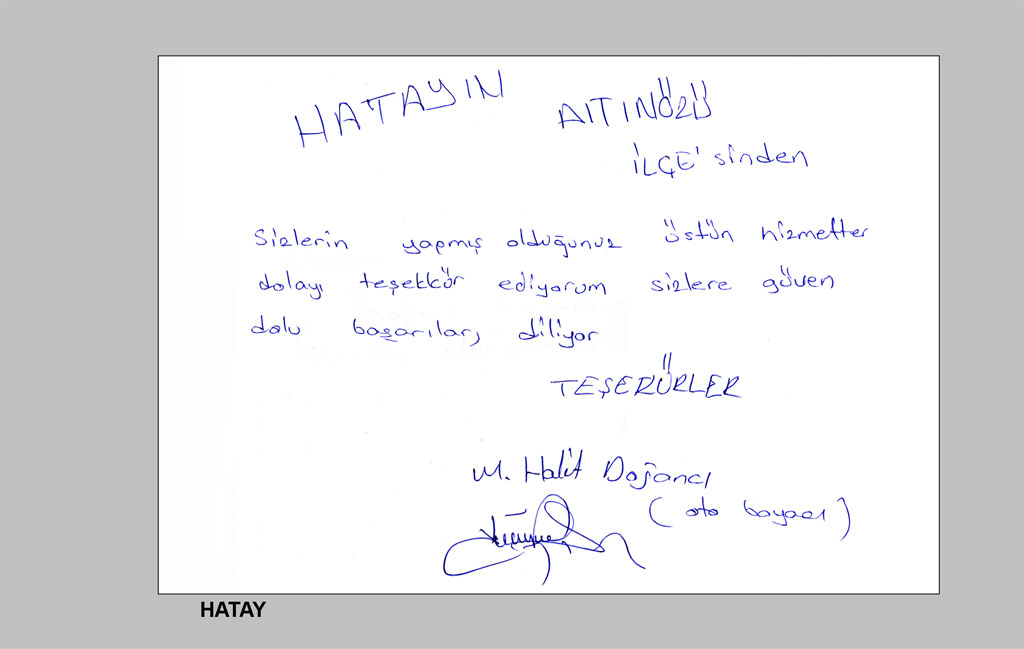 HATAYIN AlTINÖZÜ
İLÇE'sinden
Sizlerin yapmış olduğunuz üstün hizmetter
dolayı teşekkür ediyorum sizlere güven
dolu başarılar, diliyor
TEŞEKÜRLER
M. Halit Doğancı
(oto boyacı)
HATAY